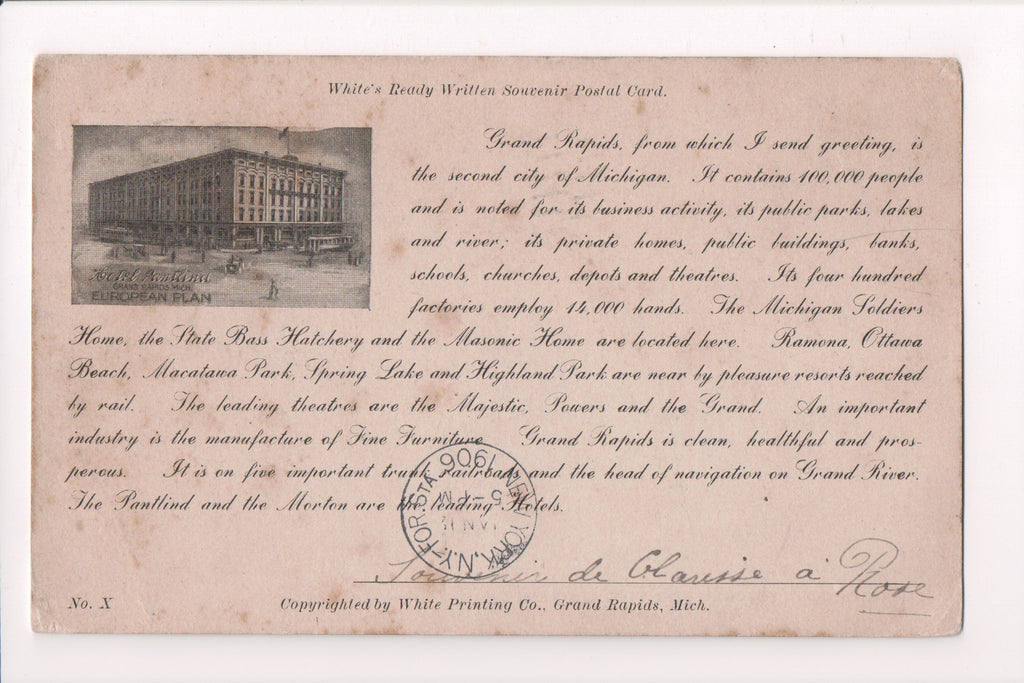 White's Ready Written Souvenir Postal Card.
Hotel Pantlind
GRAND RAPIDS MICH.
EUROPEAN PLAN
Grand Rapids, from which I send greeting, is
the second city of Michigan. It contains 100,000 people
and is noted for its business activity, its public parks, lakes
and river; its private homes, public buildings, banks,
schools, churches, depots and theatres. Its four hundred
factories employ 14,000 hands. The Michigan Soldiers
Home, the State Bass Hatchery and the Masonic Home are located here. Ramona, Ottawa
Beach, Macatawa Park, Spring Lake and Highland Park are near by pleasure resorts reached
by rail. The leading theatres are the Majestic, Powers and the Grand. An important
industry is the manufacture of Fine Furniture. Grand Rapids is clean, healthful and pros-
perous. It is on five important trunk railroads and the head of navigation on Grand River.
The Pantlind and the Morton are the leading Hotels.
NEW YORK, N.Y.-FOR. STA. 1906
5-PM
JAN
Souvenir de Clarisse à Rose
No. X
Copyrighted by White Printing Co., Grand Rapids, Mich.